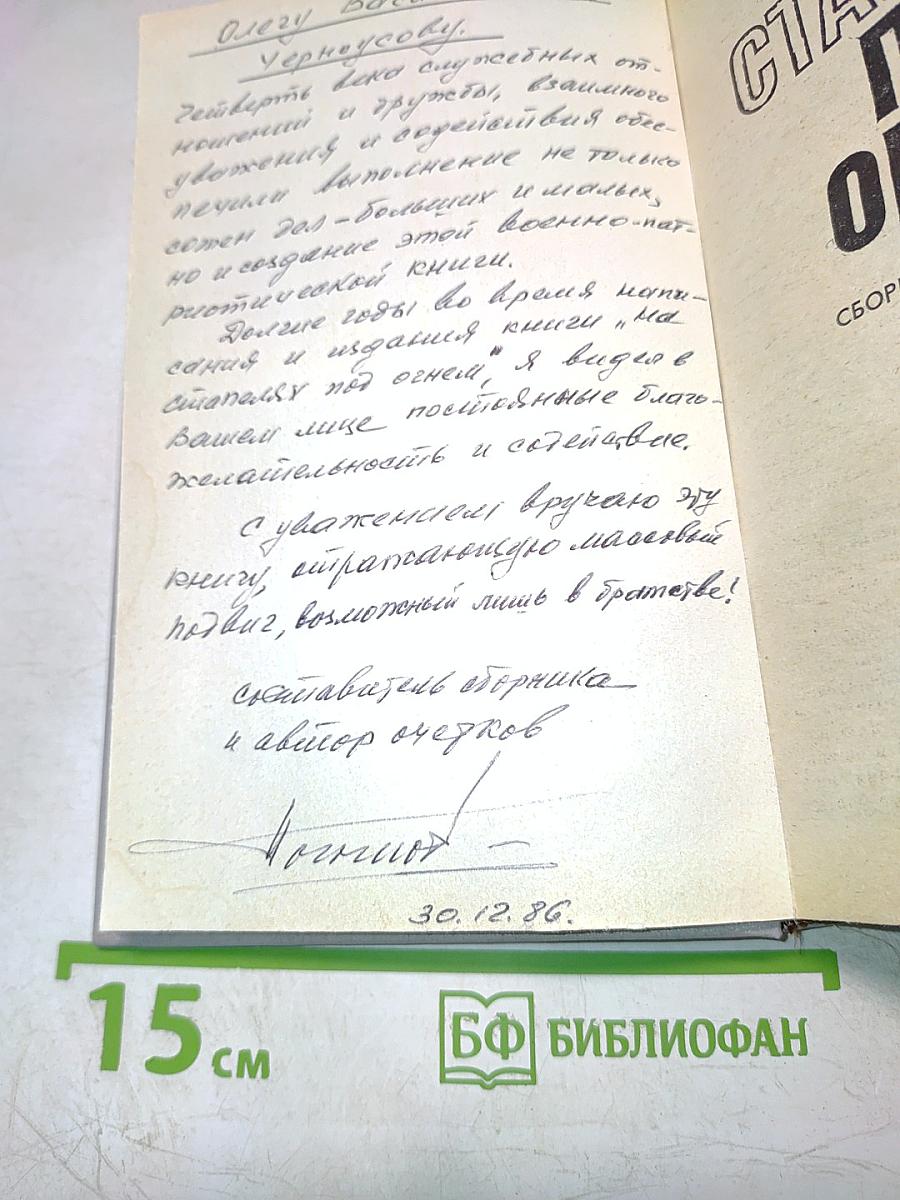 Олегу
Черноусову.
Четверть века служебных от-
ношений и дружбы, взаимного
уважения и содействия обес-
печили выполнение не только
сотен дел – больших и малых,
но и создание этой военно-пат-
риотической книги.
Долгие годы во время напи-
сания и издания книги „На
стапелях под огнем", я видел в
Вашем лице постоянные благо-
желательность и содействие.
С уважением вручаю эту
книгу, отражающую массовый
подвиг, возможный лишь в братстве!
составитель сборника
и автор очерков
30.12.86.
СТА
П
ОГ
СБОР
15 см
БФ БИБЛИОФАН